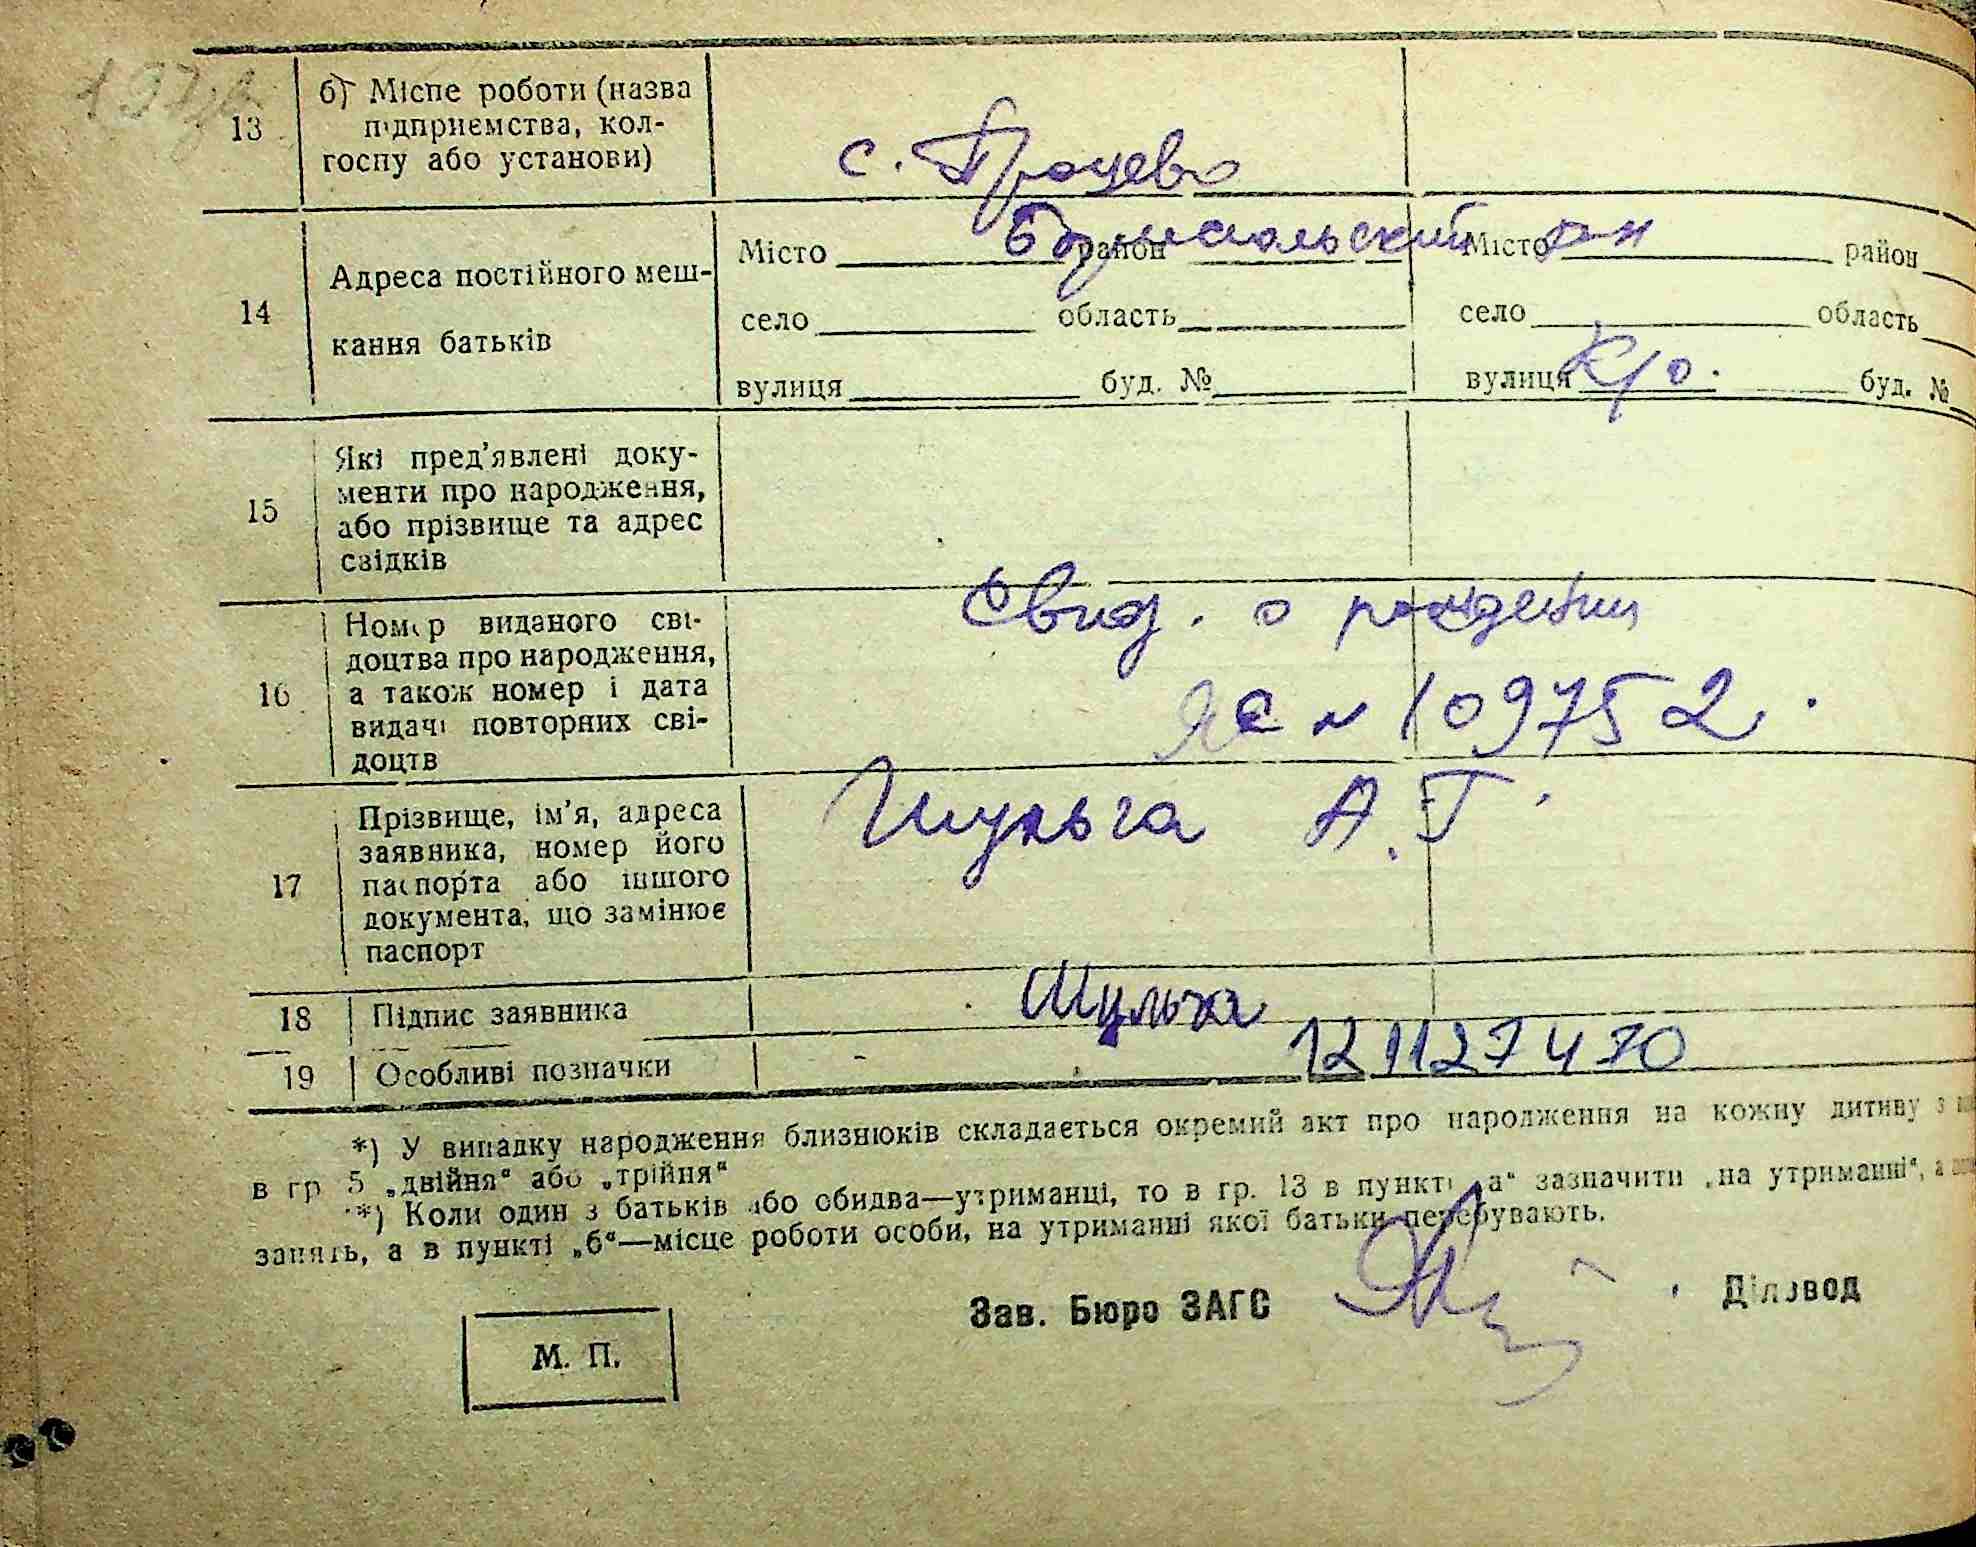 197зв
13
б) Місце роботи (назва
підприємства, кол-
госпу або установи)
с. Процево
Бориспольский р-н
14
Адреса постійного меш-
кання батьків
Місто район Місто район
село область село область
вулиця буд. № вулиця К/о. буд. №
15
Які пред'явлені доку-
менти про народження,
або прізвище та адрес
свідків
16
Номер виданого сві-
доцтва про народження,
а також номер і дата
видачі повторних сві-
доцтв
Свид. о рождении
ЯЄ № 109752.
17
Прізвище, ім'я, адреса
заявника, номер його
паспорта або іншого
документа, що замінює
паспорт
Шульга А.Г.
18 Підпис заявника Шульга
19 Особливі позначки 1211127470
*) У випадку народження близнюків складається окремий акт про народження на кожну дитину з
в гр 5 „двійня“ або „трійня“
**) Коли один з батьків або обидва—утриманці, то в гр. 13 в пункті „а“ зазначити „на утриманні“, а
занять, а в пункті „б“—місце роботи особи, на утриманні якої батьки перебувають.
Зав. Бюро ЗАГС Діловод
М. П.